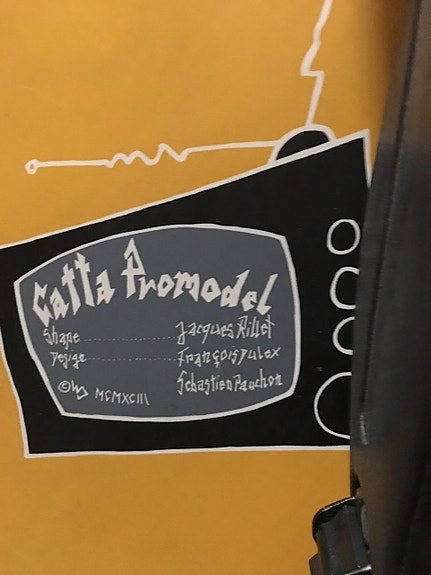 Gatta Promodel
Shape ........................ Jacques Rillet
Design ........................ François Dulex
Sébastien Pauchon
© MCMXCIII